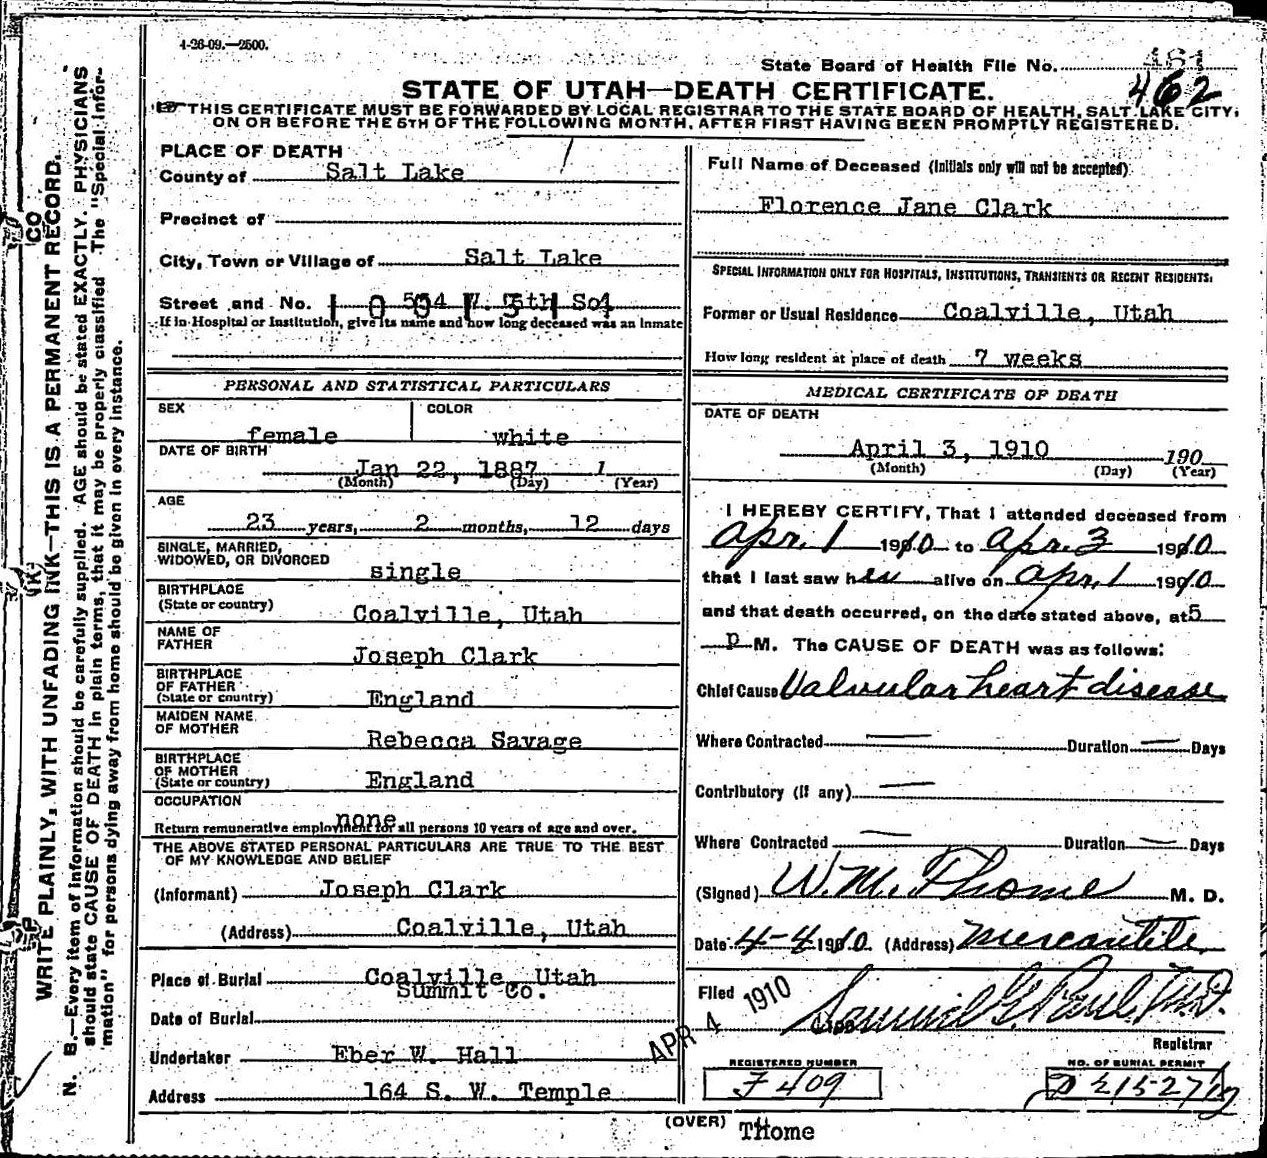 4-26-09.—2500.
State Board of Health File No. 461
462
STATE OF UTAH—DEATH CERTIFICATE.
THIS CERTIFICATE MUST BE FORWARDED BY LOCAL REGISTRAR TO THE STATE BOARD OF HEALTH, SALT LAKE CITY,
ON OR BEFORE THE 5TH OF THE FOLLOWING MONTH, AFTER FIRST HAVING BEEN PROMPTLY REGISTERED.
WRITE PLAINLY, WITH UNFADING INK—THIS IS A PERMANENT RECORD.
N. B.—Every item of information should be carefully supplied. AGE should be stated EXACTLY. PHYSICIANS
should state CAUSE OF DEATH in plain terms, that it may be properly classified. The "Special Infor-
mation" for persons dying away from home should be given in every instance.
PLACE OF DEATH
County of Salt Lake
Precinct of
City, Town or Village of Salt Lake
Street and No. 534 W. 5th So
If in Hospital or Institution, give its name and how long deceased was an inmate
PERSONAL AND STATISTICAL PARTICULARS
SEX COLOR
female white
DATE OF BIRTH
Jan 22, 1887 1
(Month) (Day) (Year)
AGE
23 years, 2 months, 12 days
SINGLE, MARRIED,
WIDOWED, OR DIVORCED single
BIRTHPLACE
(State or country) Coalville, Utah
NAME OF
FATHER Joseph Clark
BIRTHPLACE
OF FATHER
(State or country) England
MAIDEN NAME
OF MOTHER Rebecca Savage
BIRTHPLACE
OF MOTHER
(State or country) England
OCCUPATION
none
Return remunerative employment for all persons 10 years of age and over.
THE ABOVE STATED PERSONAL PARTICULARS ARE TRUE TO THE BEST
OF MY KNOWLEDGE AND BELIEF
(Informant) Joseph Clark
(Address) Coalville, Utah
Place of Burial Coalville, Utah
Summit Co.
Date of Burial
Undertaker Eber W. Hall
Address 164 S. W. Temple
Full Name of Deceased (Initials only will not be accepted)
Florence Jane Clark
SPECIAL INFORMATION ONLY FOR HOSPITALS, INSTITUTIONS, TRANSIENTS OR RECENT RESIDENTS.
Former or Usual Residence Coalville, Utah
How long resident at place of death 7 weeks
MEDICAL CERTIFICATE OF DEATH
DATE OF DEATH
April 3, 1910 190
(Month) (Day) (Year)
I HEREBY CERTIFY, That I attended deceased from
Apr. 1 1910 to Apr. 3 1910
that I last saw her alive on Apr. 1 1910
and that death occurred, on the date stated above, at 5
p M. The CAUSE OF DEATH was as follows:
Chief Cause Valvular heart disease
Where Contracted — Duration — Days
Contributory (if any) —
Where Contracted — Duration — Days
(Signed) W. M. Thome M. D.
Date 4-4 1910. (Address) Mercantile
Filed APR 4 1910 Samuel G. Paul, M.D.
Registrar
REGISTERED NUMBER
F 409
NO. OF BURIAL PERMIT
(OVER)
THome